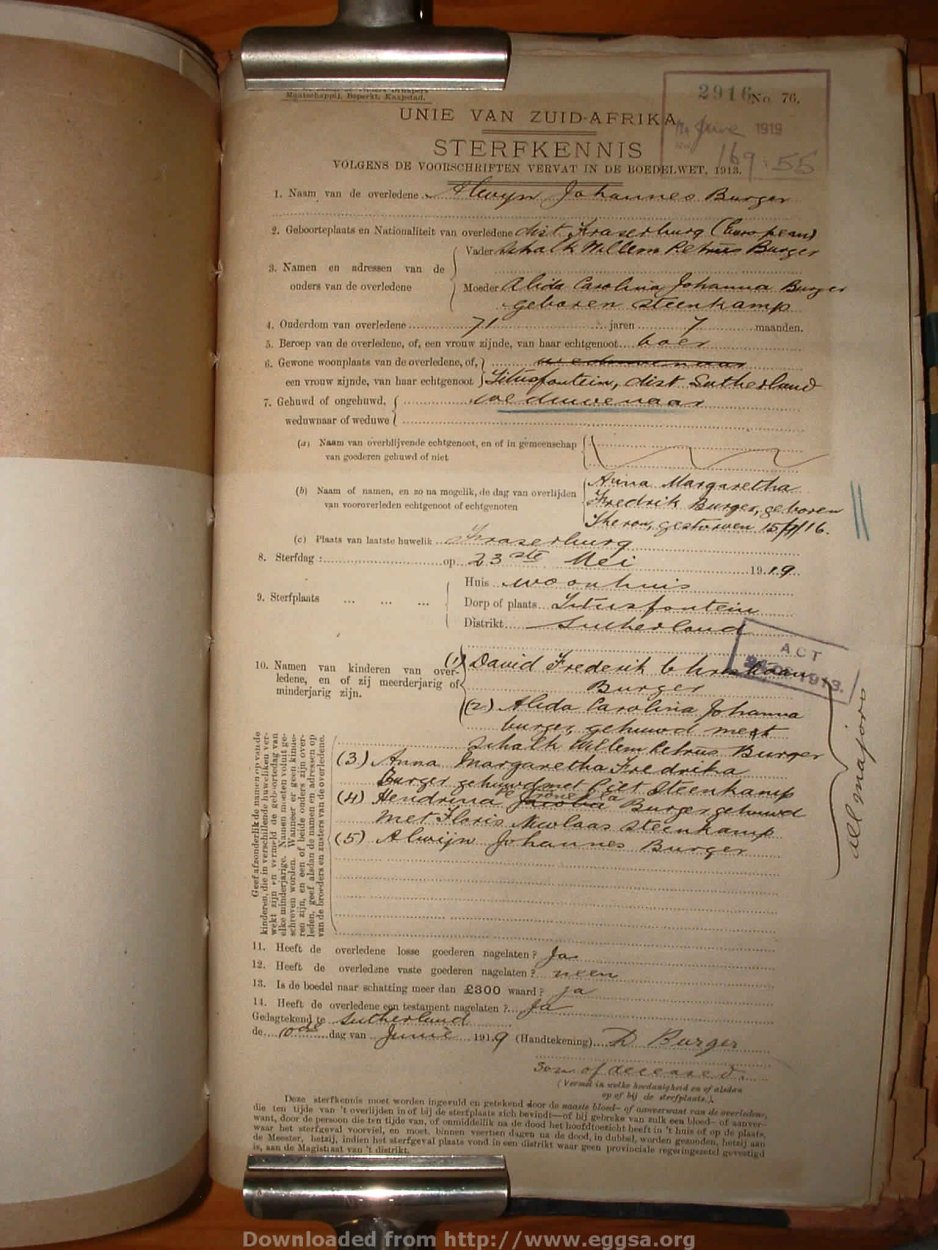 Maatschappij, Beperkt, Kaapstad.
2916 No. 76.
June 1919
169:55
UNIE VAN ZUID-AFRIKA
STERFKENNIS
VOLGENS DE VOORSCHRIFTEN VERVAT IN DE BOEDELWET, 1913.
1. Naam van de overledene Alwyn Johannes Burger
2. Geboorteplaats en Nationaliteit van overledene dist. Fraserburg (European)
3. Namen en adressen van de ouders van de overledene
Vader Schalk Willem Petrus Burger
Moeder Alida Carolina Johanna Burger
geboren Steenkamp
4. Ouderdom van overledene 71 jaren 7 maanden.
5. Beroep van de overledene, of, een vrouw zijnde, van haar echtgenoot boer
6. Gewone woonplaats van de overledene, of, weduwenaar
een vrouw zijnde, van haar echtgenoot Titusfontein, dist Sutherland
7. Gehuwd of ongehuwd, weduwenaar
weduwnaar of weduwe
(a) Naam van overblijvende echtgenoot, en of in gemeenschap
van goederen gehuwd of niet
(b) Naam of namen, en zo na mogelik, de dag van overlijden
van vooroverleden echtgenoot of echtgenoten
Anna Margaretha
Fredrik Burger, geboren
Theron, gestorwen 15/ /16.
(c) Plaats van laatste huwelik Fraserburg
8. Sterfdag: op 23ste Mei 1919
9. Sterfplaats
Huis woonhuis
Dorp of plaats Titusfontein
Distrikt Sutherland
ACT
1913.
10. Namen van kinderen van over-
ledene, en of zij meerderjarig of
minderjarig zijn.
(1) David Frederik Christiaan
Burger
(2) Alida Carolina Johanna
burger, gehuwd meet
Schalk Willem Petrus Burger
(3) Anna Margaretha Fredrika
Burger gehuwd met Piet Steenkamp
(4) Hendrina Jacoba Burger gehuwd
met Floris Nicolaas Steenkamp
(5) Alwijn Johannes Burger
All majors
Geef afzonderlik de namen op van de
kinderen, die in verschillende huweliken ver-
wekt zijn en vermeld de geboortedag van
elke minderjarige. Namen moeten voluit ge-
schreven worden. Wanneer er geen kinde-
ren zijn, en een of beide ouders zijn over-
leden, geef alsdan de namen en adressen op
van de broeders en zusters van de overledene.
11. Heeft de overledene losse goederen nagelaten? Ja
12. Heeft de overledene vaste goederen nagelaten? neen
13. Is de boedel naar schatting meer dan £300 waard? ja
14. Heeft de overledene een testament nagelaten? Ja
Gedagtekend te Sutherland
de 10de dag van Junie 1919 (Handtekening) D Burger
Son of deceased.
(Vermeld in welke hoedanigheid en of alsdan
op of bij de sterfplaats.)
Deze sterfkennis moet worden ingevuld en getekend door de naaste bloed- of aanverwant van de overledene,
die ten tijde van 't overlijden in of bij de sterfplaats zich bevindt—of bij gebreke van zulk een bloed- of aanver-
want, door de persoon die ten tijde van, of onmiddellik na de dood het hoofdtoezicht heeft in 't huis of op de plaats,
waar het sterfgeval voorviel, en moet, binnen veertien dagen na de dood, in dubbel, worden gezonden, hetzij aan
de Meester, hetzij, indien het sterfgeval plaats vond in een distrikt waar geen provinciale regeringszetel gevestigd
is, aan de Magistraat van 't distrikt.
Downloaded from http://www.eggsa.org